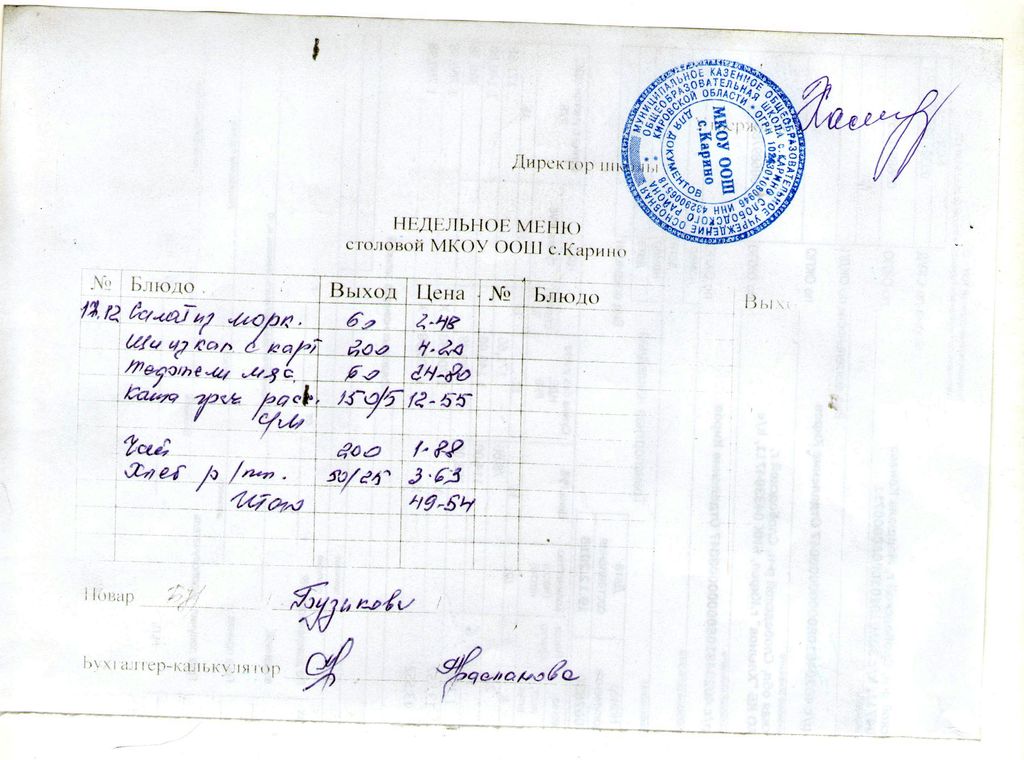 МУНИЦИПАЛЬНОЕ КАЗЕННОЕ ОБЩЕОБРАЗОВАТЕЛЬНОЕ УЧРЕЖДЕНИЕ ОСНОВНАЯ
ОБЩЕОБРАЗОВАТЕЛЬНАЯ ШКОЛА с. КАРИНО СЛОБОДСКОГО РАЙОНА
КИРОВСКОЙ ОБЛАСТИ * ОГРН ИНН
ДЛЯ ДОКУМЕНТОВ
МКОУ ООШ
с. Карино
Директор школы
НЕДЕЛЬНОЕ МЕНЮ
столовой МКОУ ООШ с.Карино
№ Блюдо Выход Цена № Блюдо Вых
17.12 Салат из морк. 60 2-48
Щи из кап с карт 200 4-20
Тефтели мяс. 60 24-80
Каша греч расс. 150/5 12-55
с/м
Чай 200 1-88
Хлеб р/пш. 50/25 3-63
Итого 49-54
Повар Бузикова
Бухгалтер-калькулятор